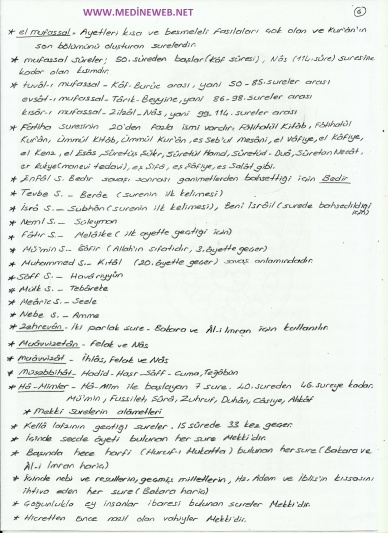 www.MEDINEWEB.net
6
* el mufassal - Ayetleri kısa ve besmeleli fasılaları çok olan ve Kur'ân'ın
son bölümünü oluşturan surelerdir.
* mufassal sûreler; 50. sûreden başlar (Kâf sûresi), Nâs (114. sûre) suresine
kadar olan kısımdır.
* tuvâl-ı mufassal - Kâf-Burûc arası, yani 50-85. sureler arası
evsât-ı mufassal - Târık-Beyyine, yani 86-98. sureler arası
kısâr-ı mufassal - Zilzâl-Nâs, yani 99. 114. sureler arası
* Fâtiha Suresinin 20'den fazla ismi vardır: Fâtihatül Kitâb, Fâtihatül
Kur'an, Ümmül Kitâb, Ümmül Kur'ân, es Seb'ul mesâni, el Vâfiye, el Kâfiye,
el Kenz, el Esâs, Sûretüş Şükr, Sûretül Hamd, Sûretüd-Duâ, Sûreton Necât,
er Rukye (manevi tedavi), eş Şifâ, eş Şâfiye, es Salât gibi.
* Enfâl S. Bedir savaşı sonrası ganimetlerden bahsettiği için Bedir
* Tevbe S. - Berâe (surenin ilk kelimesi)
* İsrâ S. - Subhân (surenin ilk kelimesi), Beni İsrâil (surede bahsedildiği
için)
* Neml S. - Süleyman
* Fâtır S. - Melâike (ilk ayette geçtiği için)
* Mü'min S. - Gâfir (Allah'ın sıfatıdır, 3. âyette geçer)
* Muhammed S. - Kıtâl (20. âyette geçer) savaş anlamındadır.
* Sâff S. - Havâriyyûn
* Mülk S. - Tebâreke
* Meâric S. - Seele
* Nebe S. - Amme
* Zehrevân - İki parlak sure - Bakara ve Âl-i İmran için kullanılır
* Muavvizetân - Felak ve Nâs
* Muavvizât - İhlâs, Felak ve Nâs
* Müsebbihât - Hadid - Haşr - Sâff - Cuma, Teğâbün
* Hâ-Mimler - Hâ-Mîm ile başlayan 7 sure. 40. sureden 46. sureye kadar.
Mü'min, Fussilet, Şûrâ, Zuhruf, Duhân, Câsiye, Ahkâf
* Mekki Surelerin alâmetleri
* Kellâ lafzının geçtiği sureler. 15 sûrede 33 kez geçer.
* İçinde secde âyeti bulunan her sure Mekki'dir.
* Başında hece harfi (Huruf-ı Mukatta) bulunan her sure (Bakara ve
Âl-i İmran hariç)
* İçinde nebi ve resullerin, geçmiş milletlerin, Hz. Âdem ve İblis'in kıssasını
ihtiva eden her sure (Bakara hariç)
* Çoğunlukla ey insanlar ibaresi bulunan sureler Mekki'dir.
* Hicretten önce nazil olan vahiyler Mekki'dir.